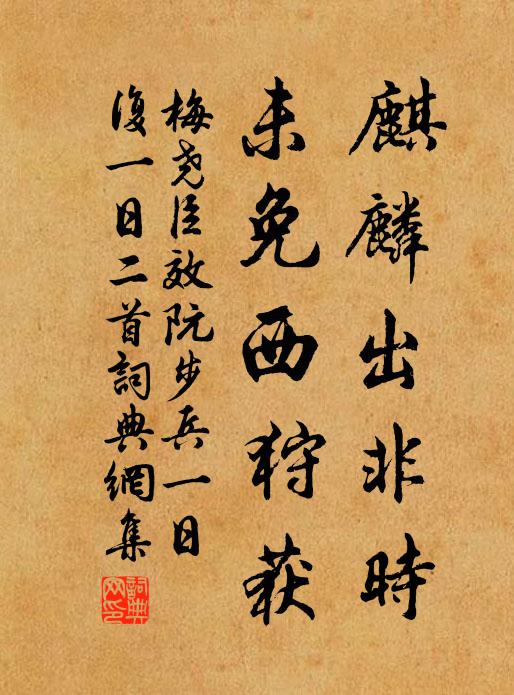 麒麟出非時
未免西狩获
梅尧臣效阮步兵一日
復一日二首詞典網集
詞典
网印